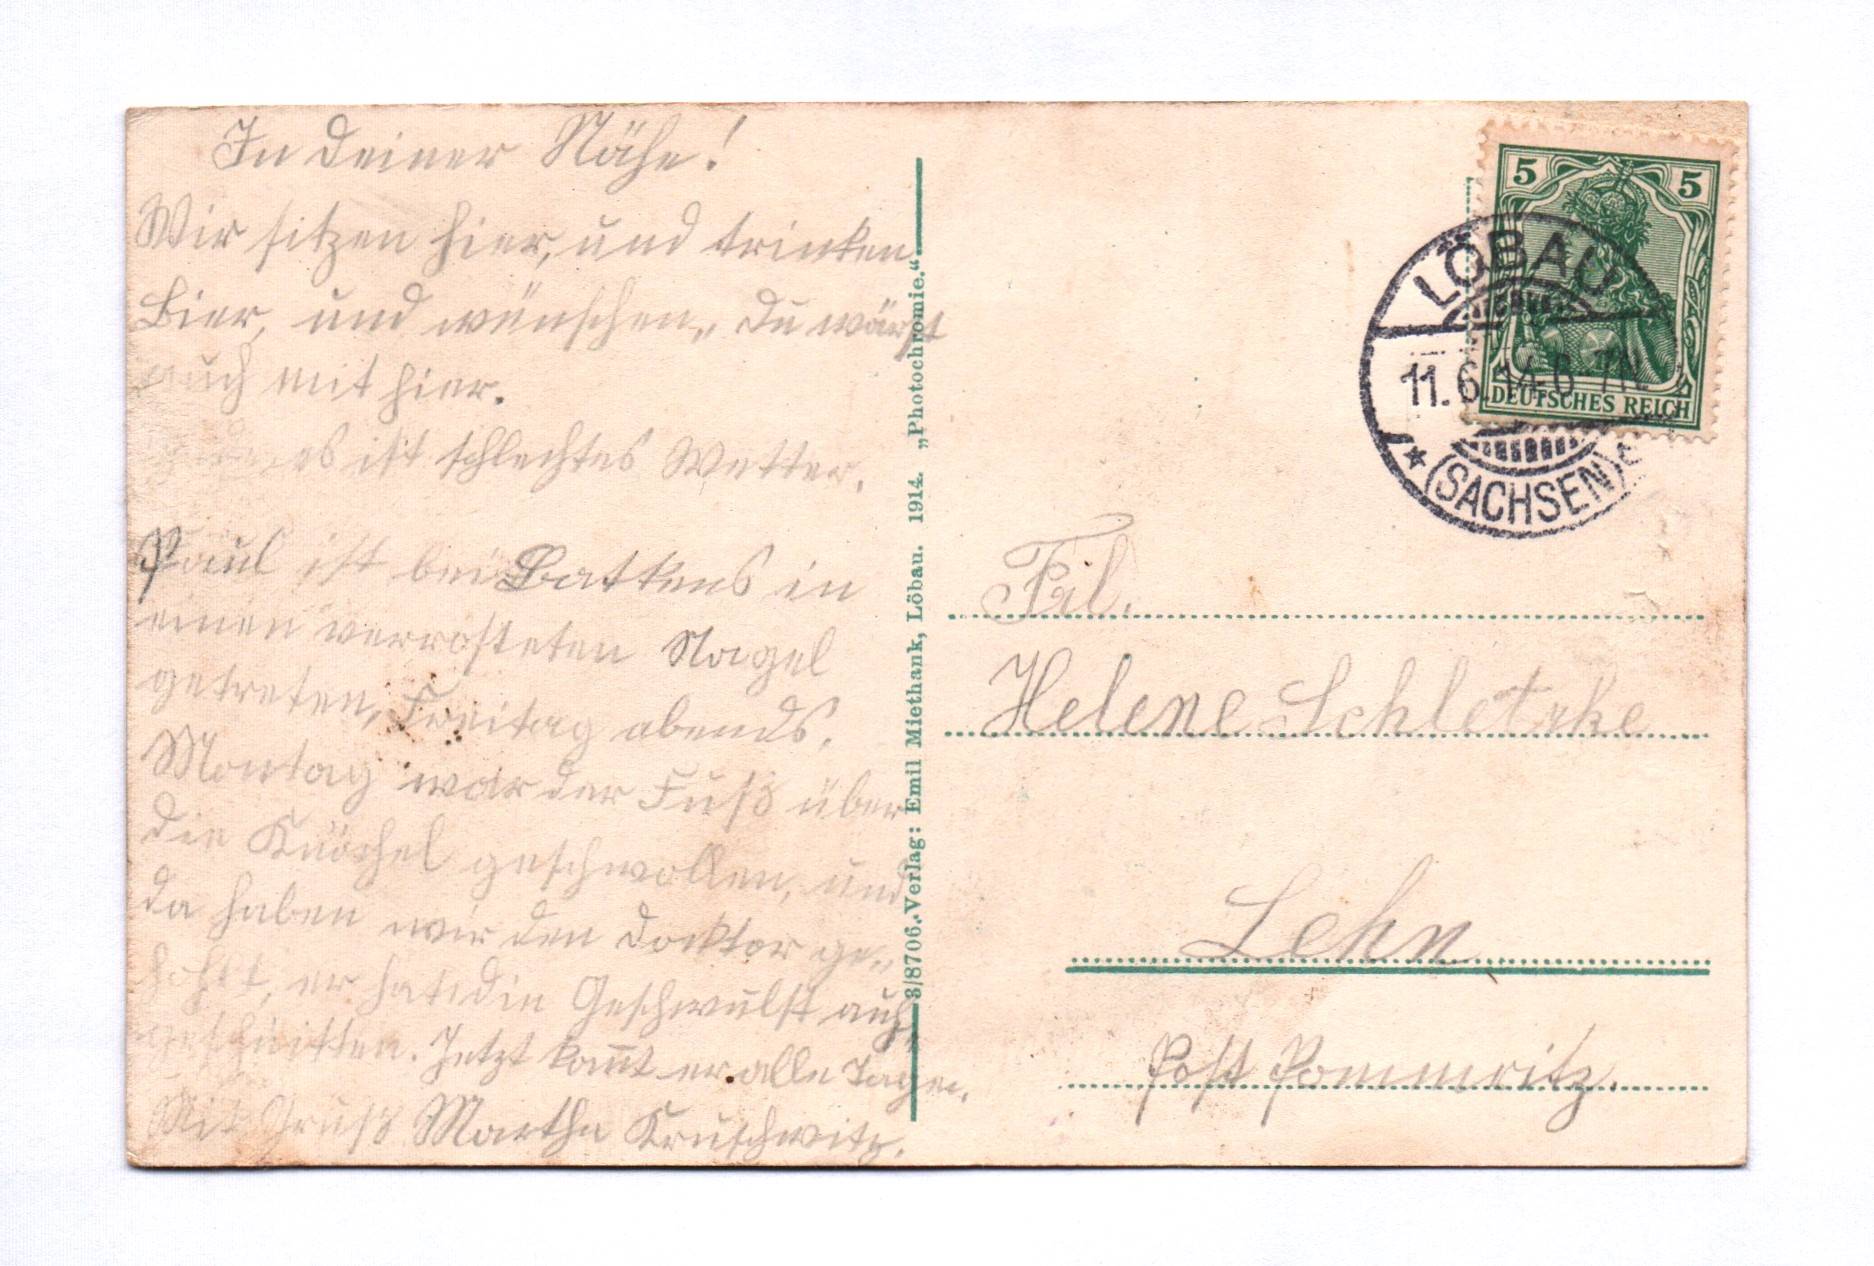 In deiner Nähe!
Wir sitzen hier, und trinken
Bier, und wünschen, du wärst
auch mit hier.
es ist schlechtes Wetter.
Paul ist bei Batkens in
einen verrosteten Nagel
getreten, Freitag abends.
Montag war der Fuß über
die Knöchel geschwollen, und
da haben wir den Docktor ge-
hohlt, er hat die Geschwulst auf-
geschnitten. Jetzt kom̅t er alle Tage.
Mit Gruß Martha Kruschwitz.
3/8706. Verlag: Emil Miethank, Löbau. 1914. „Photochromie.“
5 5
DEUTSCHES REICH
LÖBAU
11.6.14. 6-7N.
* (SACHSEN) c
Frl.
Helene Schletzke
Lehn
Post Pommritz.